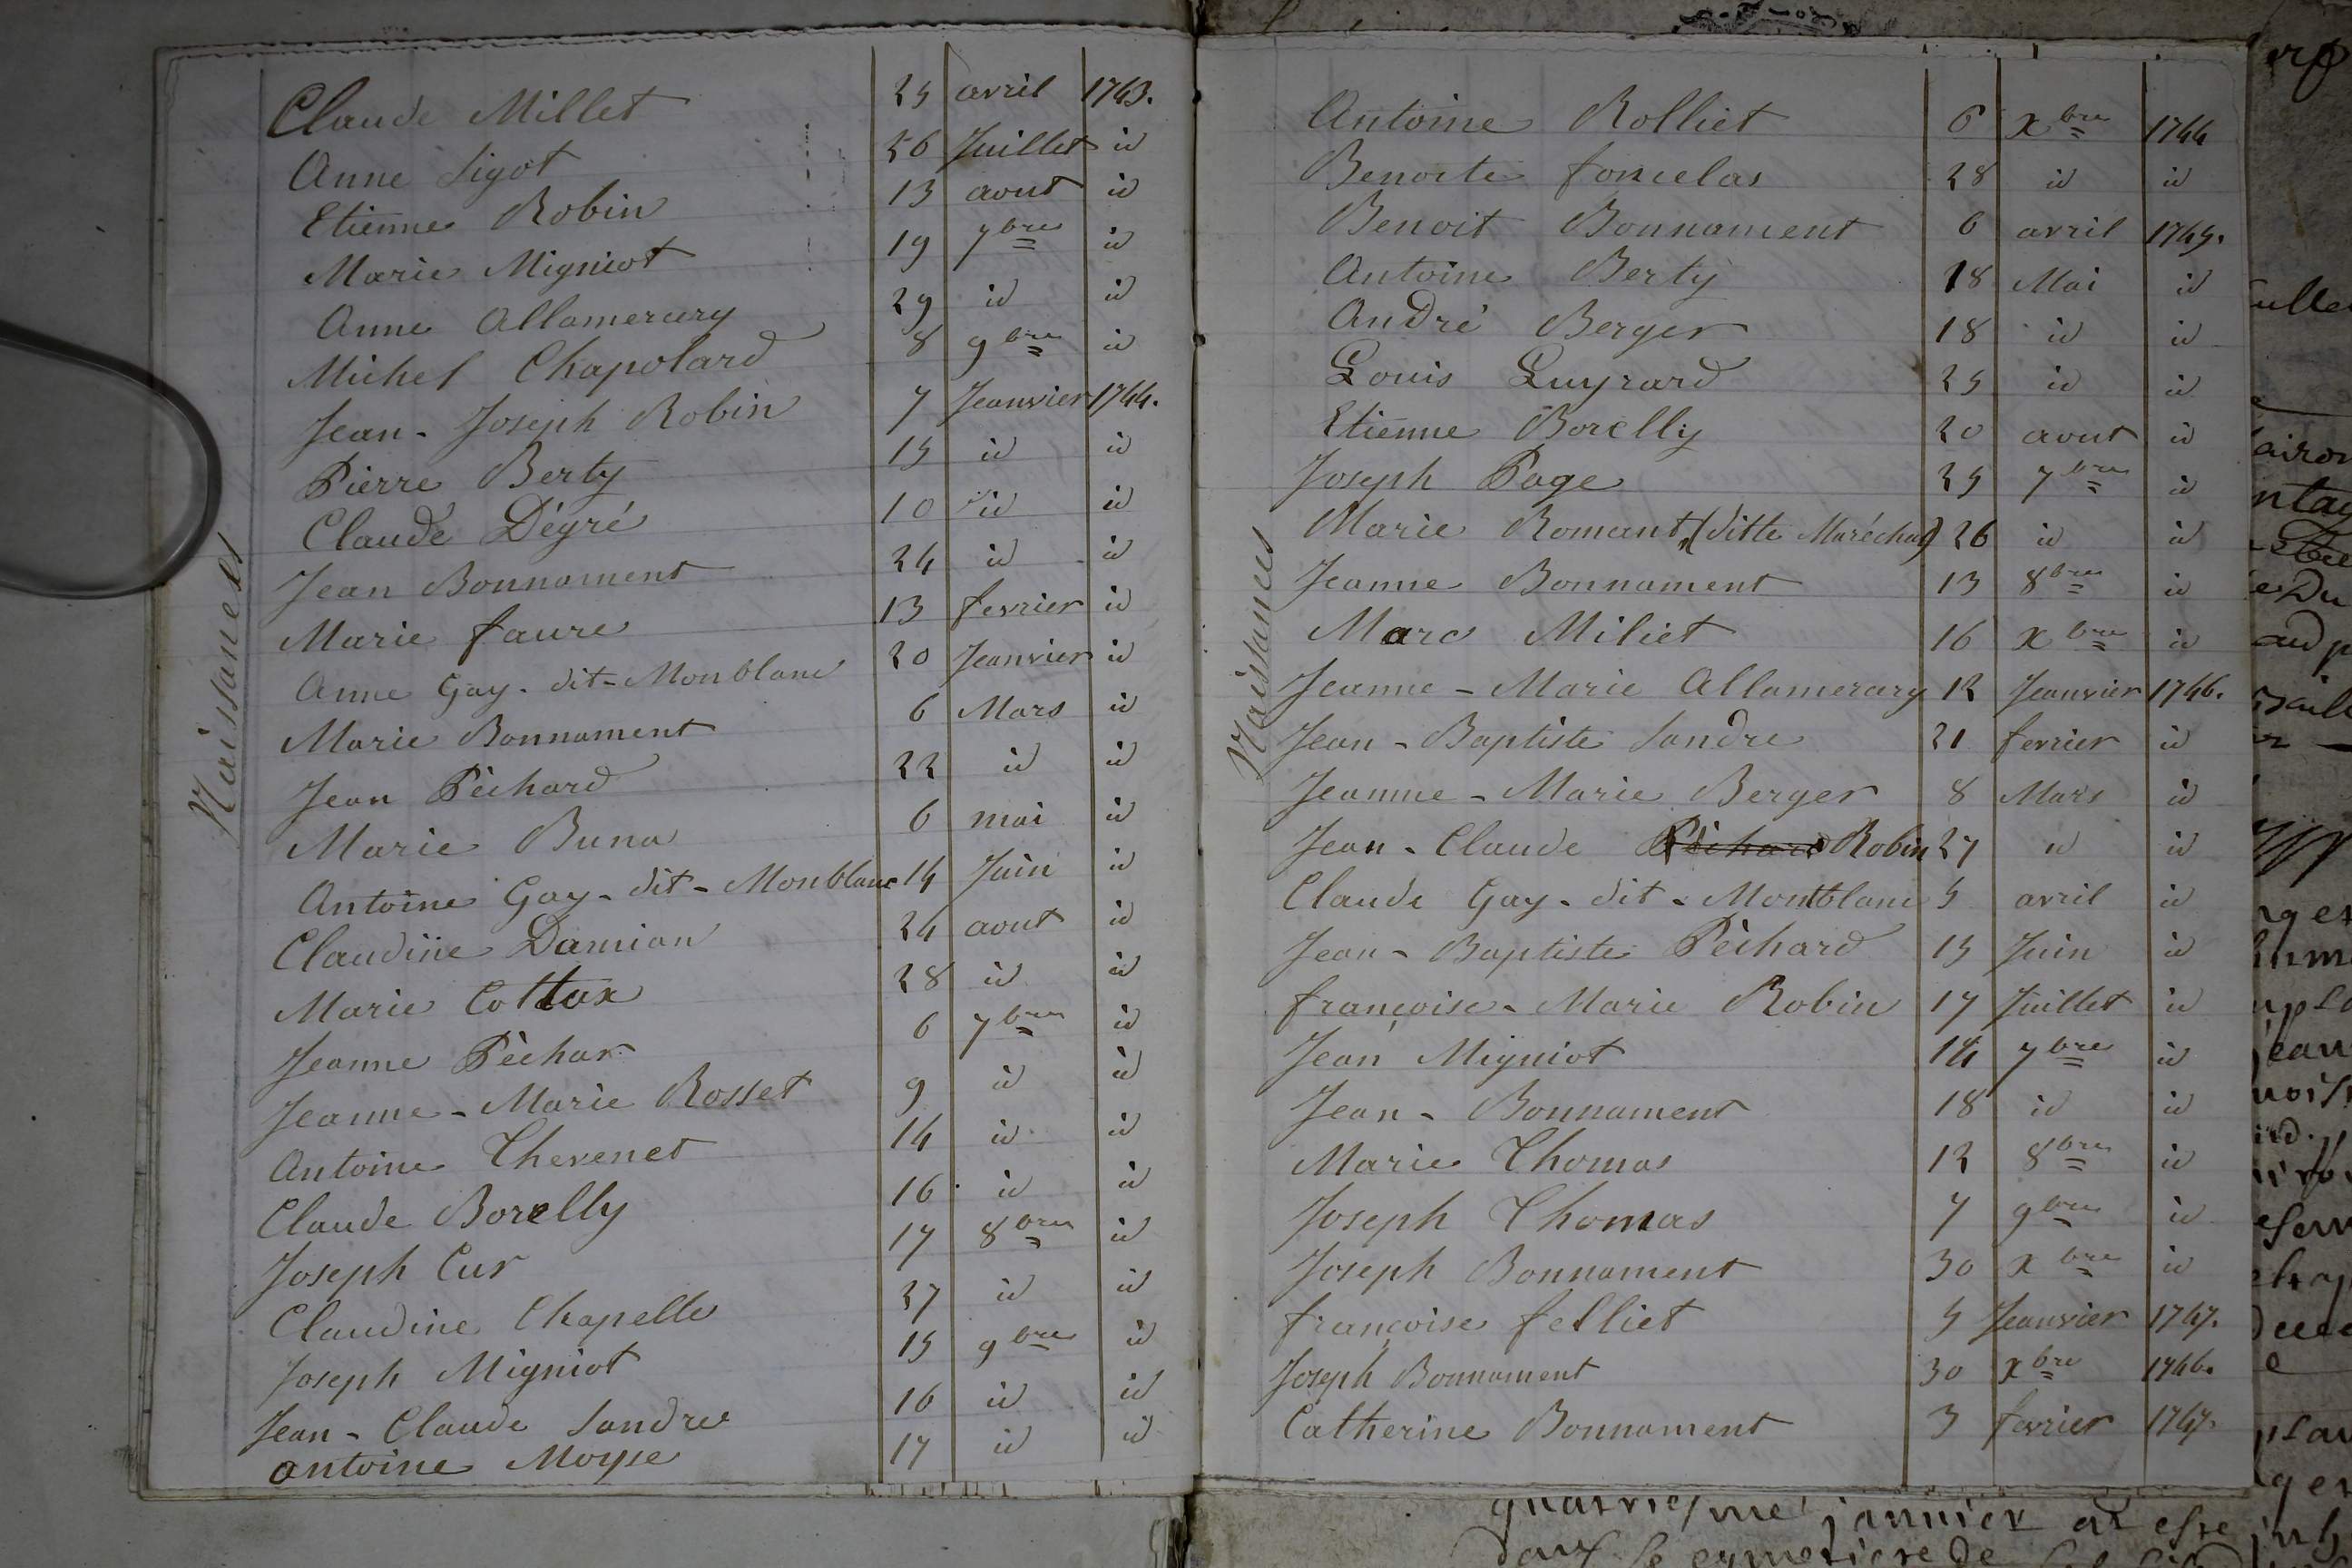 Naissances
Claude Millet 25 avril 1743.
Anne Sigot 26 Juillet id
Etienne Robin 13 aout id
Marie Migniot 19 7bre id
Anne Allamercery 29 id id
Michel Chapolard 8 9bre id
Jean-Joseph Robin 7 Jeanvier 1744.
Pierre Berty 15 id id
Claude Dégré 10 id id
Jean Bonnament 24 id id
Marie faure 13 fevrier id
Anne Gay-dit-Monblanc 20 Jeanvier id
Marie Bonnament 6 Mars id
Jean Péchard 22 id id
Marie Buna 6 mai id
Antoine Gay-dit-Monblanc 14 Juin id
Claudine Damian 24 aout id
Marie Cottax 28 id id
Jeanne Péchar 6 7bre id
Jeanne-Marie Rosset 9 id id
Antoine Thevenet 14 id id
Claude Borelly 16 id id
Joseph Cur 17 8bre id
Claudine Chapelle 27 id id
Joseph Migniot 15 9bre id
Jean-Claude Sandre 16 id id
Antoine Moyse 17 id id
Naissances
Antoine Rolliet 6 xbre 1744
Benoite foncelas 28 id id
Benoit Bonnament 6 avril 1745.
Antoine Berty 18 Mai id
André Berger 18 id id
Louis Luyrard 25 id id
Etienne Borelly 20 aout id
Joseph Page 25 7bre id
Marie Romant, (ditte Maréchal) 26 id id
Jeanne Bonnament 13 8bre id
Marc Miliet 16 xbre id
Jeanne-Marie Allamercery 12 Jeanvier 1746.
Jean-Baptiste Sandre 21 fevrier id
Jeanne-Marie Berger 8 Mars id
Jean-Claude Péchard Robin 27 id id
Claude Gay-dit-Montblanc 5 avril id
Jean-Baptiste Péchard 15 Juin id
françoise-Marie Robin 17 Juillet id
Jean Migniot 14 7bre id
Jean-Bonnament 18 id id
Marie Thomas 12 8bre id
Joseph Thomas 7 9bre id
Joseph Bonnament 30 xbre id
françoise felliet 5 Jeanvier 1747.
Joseph Bonnament 30 xbre 1746.
Catherine Bonnament 3 fevrier 1747.